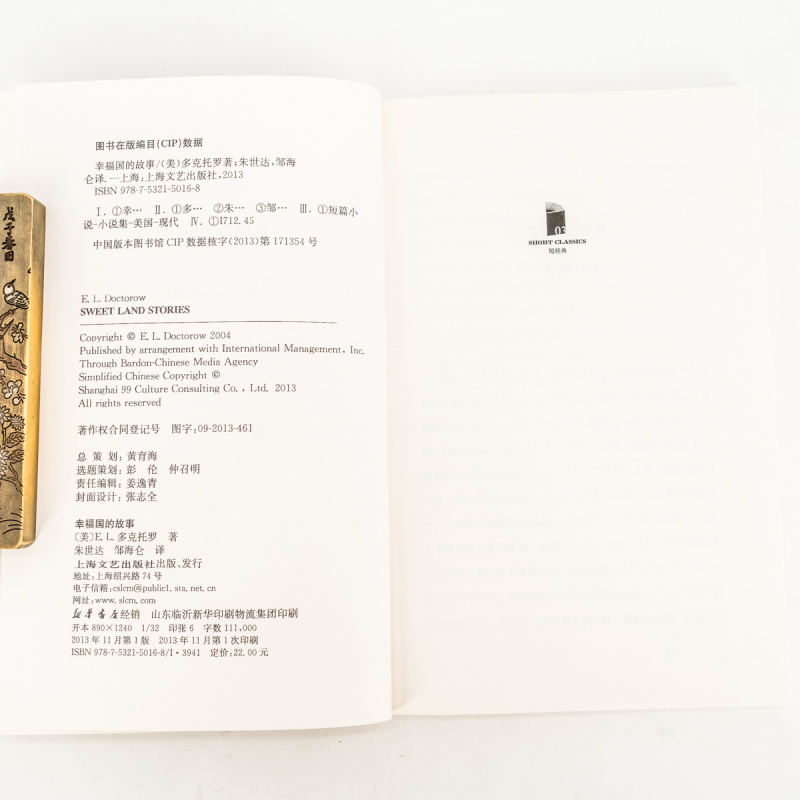 戊子春日
图书在版编目(CIP)数据
幸福国的故事/(美)多克托罗著;朱世达,邹海
仑译.—上海:上海文艺出版社,2013
ISBN 978-7-5321-5016-8
Ⅰ.①幸… Ⅱ.①多… ②朱… ③邹… Ⅲ.①短篇小
说-小说集-美国-现代 Ⅳ.①I712.45
中国版本图书馆CIP数据核字(2013)第171354号
E. L. Doctorow
SWEET LAND STORIES
Copyright © E. L. Doctorow 2004
Published by arrangement with International Management, Inc.
Through Bardon-Chinese Media Agency
Simplified Chinese Copyright ©
Shanghai 99 Culture Consulting Co., Ltd. 2013
All rights reserved
著作权合同登记号 图字:09-2013-461
总策划:黄育海
选题策划:彭 伦 仲召明
责任编辑:姜逸青
封面设计:张志全
幸福国的故事
〔美〕E. L. 多克托罗 著
朱世达 邹海仑 译
上海文艺出版社出版、发行
地址:上海绍兴路74号
电子信箱:cslcm@public1.sta.net.cn
网址:www.slcm.com
新华书店经销 山东临沂新华印刷物流集团印刷
开本890×1240 1/32 印张6 字数111,000
2013年11月第1版 2013年11月第1次印刷
ISBN 978-7-5321-5016-8/I·3941 定价:22.00元
03
SHORT CLASSICS
短经典